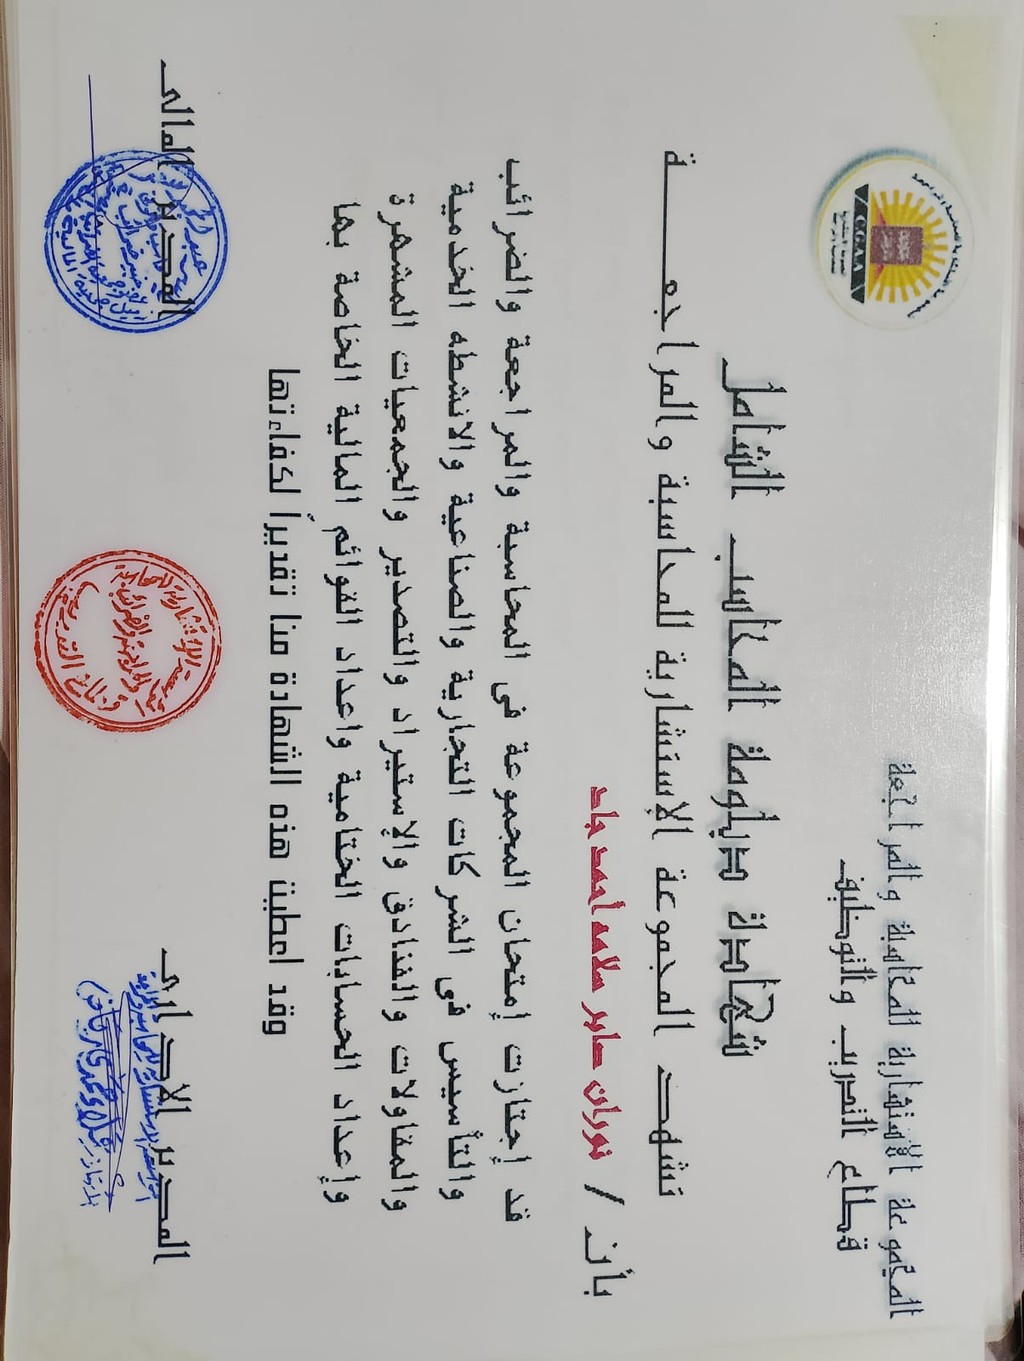 المجموعة الإستشارية للمحاسبة والمراجعة
قطاع التدريب والتوظيف
C.G.A.A
شهادة دبلومة المحاسب الشامل
تشهد المجموعة الإستشارية للمحاسبة والمراجعــــــة
بأنـ / نوران صابر سلامه أحمد جاد
قد إجتازت إمتحان المجموعة فى المحاسبة والمراجعة والضرائب
والتأسيس فى الشركات التجارية والصناعية والانشطه الخدمية
والمقاولات والفنادق والإستيراد والتصدير والجمعيات المشهرة
وإعداد الحسابات الختامية واعداد القوائم المالية الخاصة بها
وقد اعطيت هذه الشهادة منا تقديرأ لكفاءتها
المدير الادارى
المدير المالى